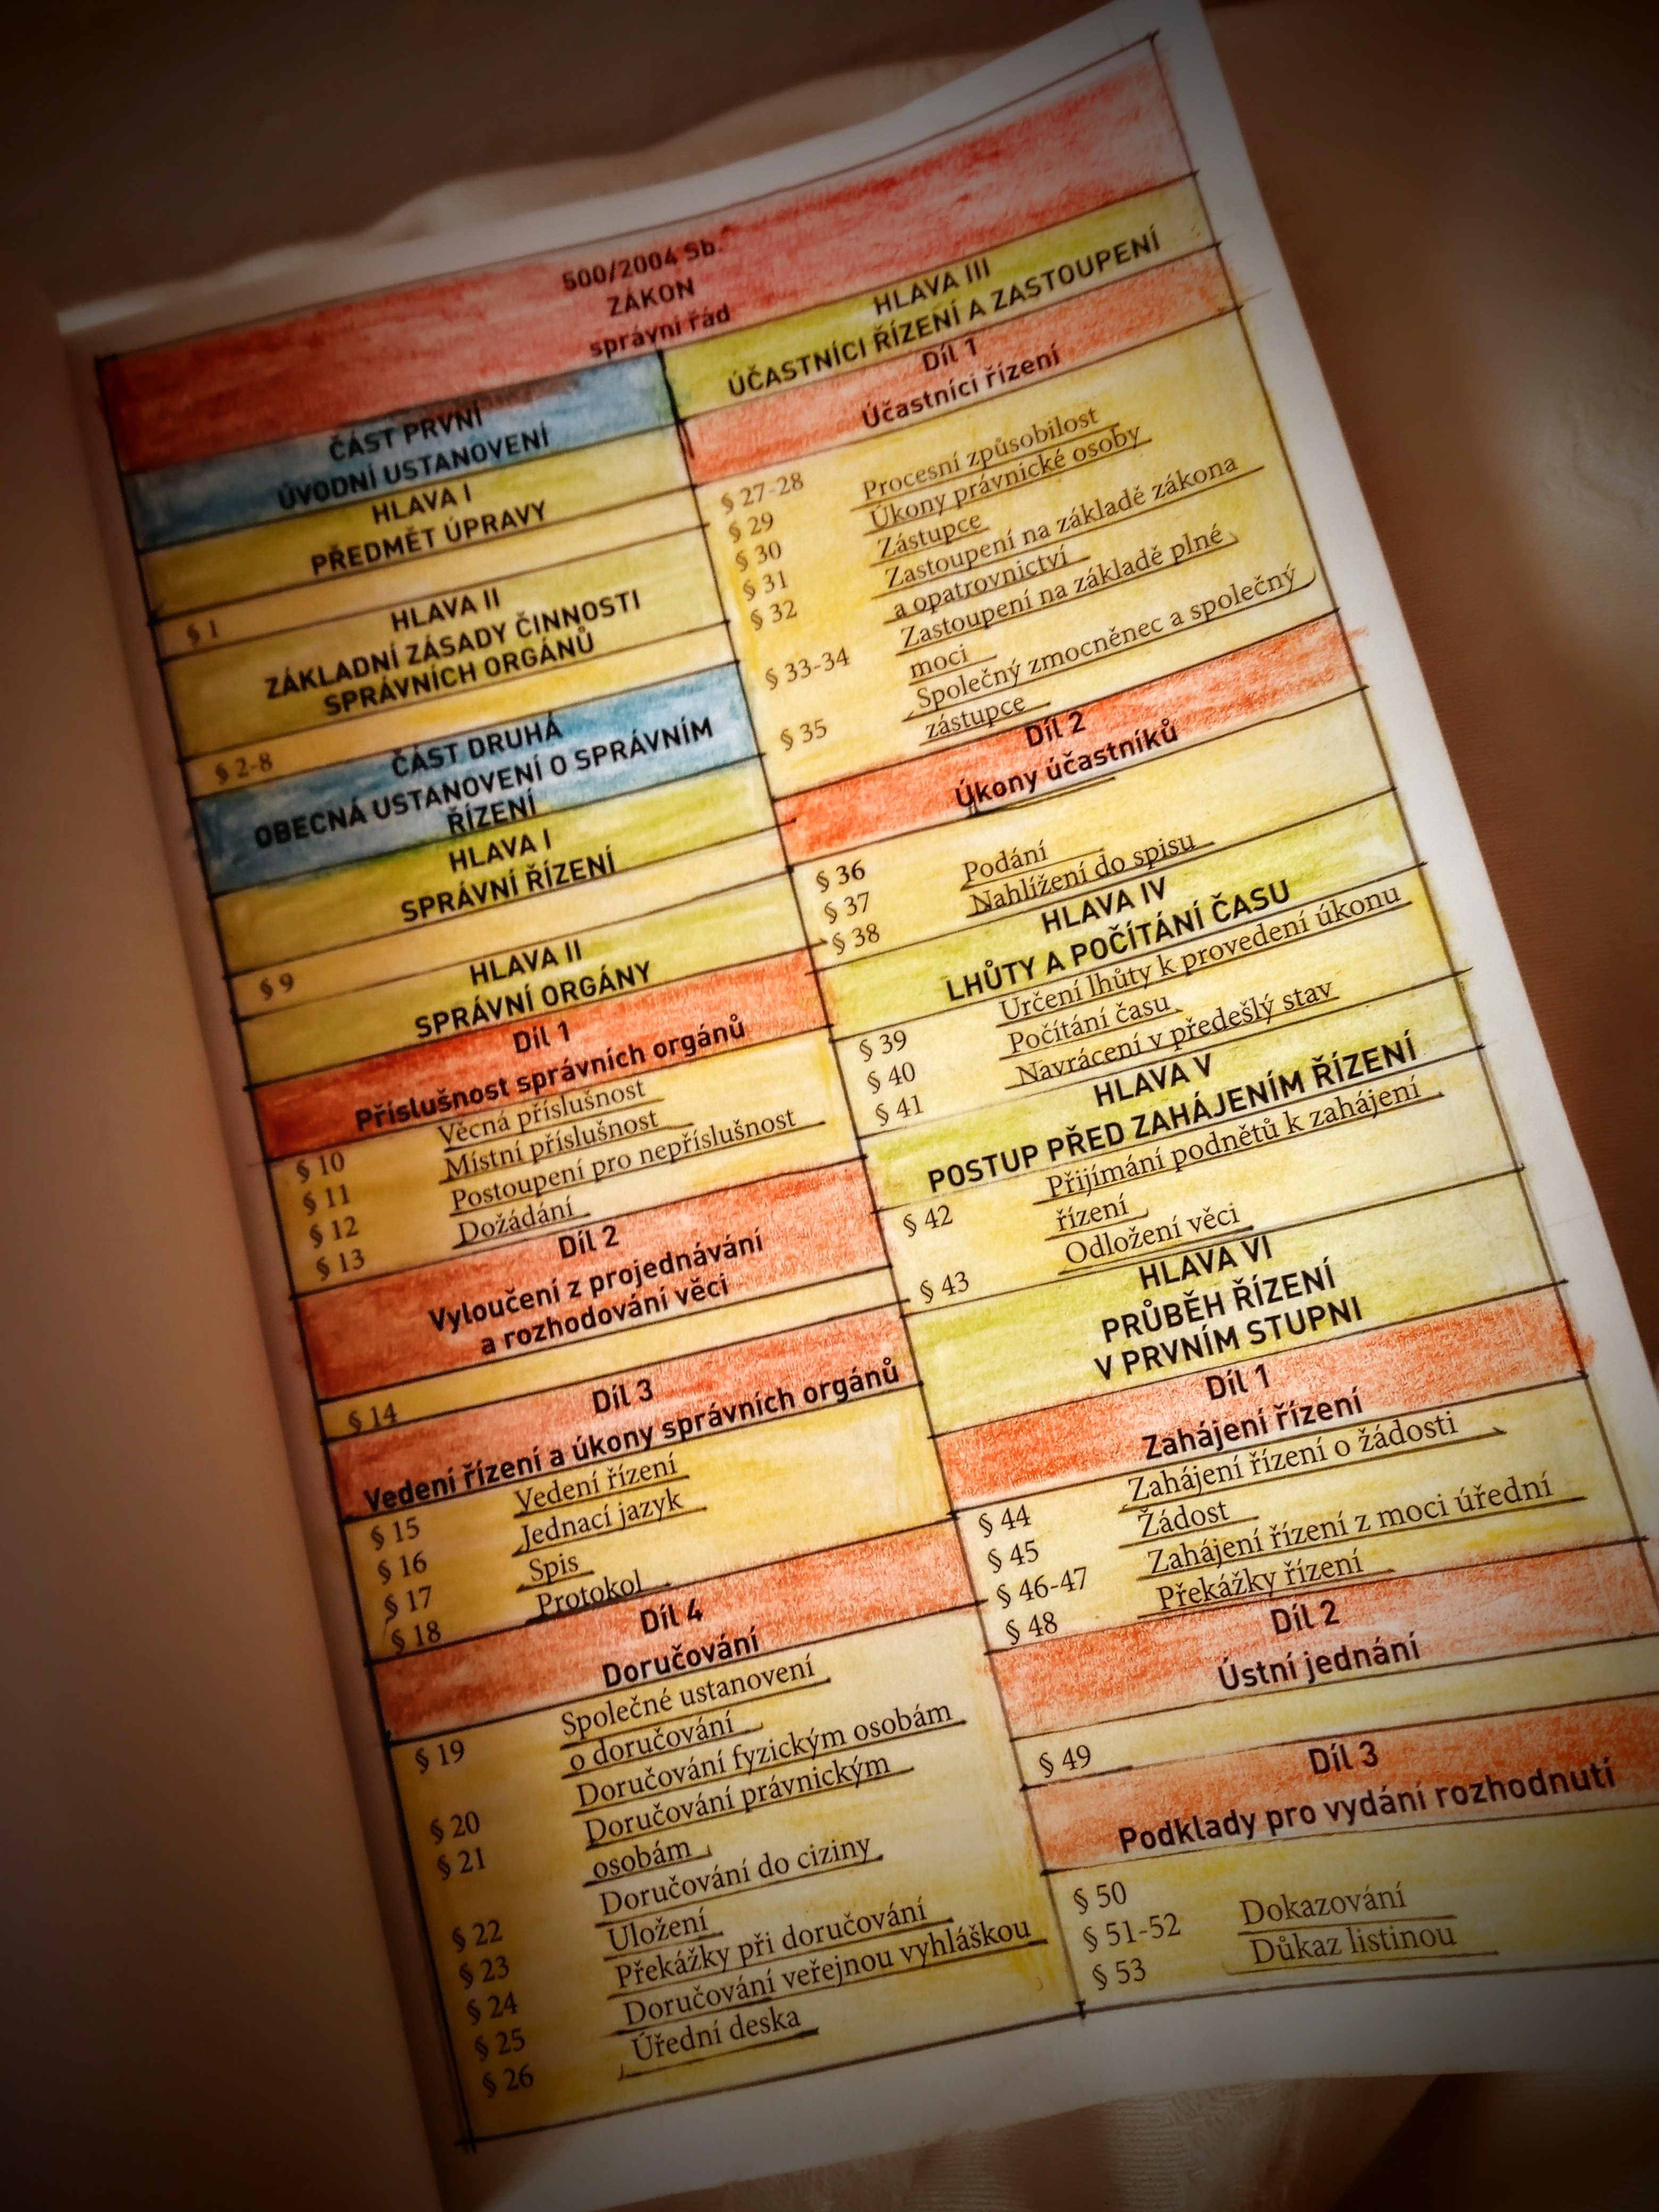 500/2004 Sb.
ZÁKON
správní řád
ČÁST PRVNÍ
ÚVODNÍ USTANOVENÍ
HLAVA I
PŘEDMĚT ÚPRAVY
§ 1
HLAVA II
ZÁKLADNÍ ZÁSADY ČINNOSTI
SPRÁVNÍCH ORGÁNŮ
§ 2-8
ČÁST DRUHÁ
OBECNÁ USTANOVENÍ O SPRÁVNÍM
ŘÍZENÍ
HLAVA I
SPRÁVNÍ ŘÍZENÍ
§ 9
HLAVA II
SPRÁVNÍ ORGÁNY
Díl 1
Příslušnost správních orgánů
§ 10 Věcná příslušnost
§ 11 Místní příslušnost
§ 12 Postoupení pro nepříslušnost
§ 13 Dožádání
Díl 2
Vyloučení z projednávání
a rozhodování věci
§ 14
Díl 3
Vedení řízení a úkony správních orgánů
§ 15 Vedení řízení
§ 16 Jednací jazyk
§ 17 Spis
§ 18 Protokol
Díl 4
Doručování
§ 19 Společné ustanovení
o doručování
§ 20 Doručování fyzickým osobám
§ 21 Doručování právnickým
osobám
§ 22 Doručování do ciziny
§ 23 Uložení
§ 24 Překážky při doručování
§ 25 Doručování veřejnou vyhláškou
§ 26 Úřední deska
HLAVA III
ÚČASTNÍCI ŘÍZENÍ A ZASTOUPENÍ
Díl 1
Účastníci řízení
§ 27-28
§ 29 Procesní způsobilost
§ 30 Úkony právnické osoby
§ 31 Zástupce
§ 32 Zastoupení na základě zákona
a opatrovnictví
§ 33-34 Zastoupení na základě plné
moci
§ 35 Společný zmocněnec a společný
zástupce
Díl 2
Úkony účastníků
§ 36
§ 37 Podání
§ 38 Nahlížení do spisu
HLAVA IV
LHŮTY A POČÍTÁNÍ ČASU
§ 39 Určení lhůty k provedení úkonu
§ 40 Počítání času
§ 41 Navrácení v předešlý stav
HLAVA V
POSTUP PŘED ZAHÁJENÍM ŘÍZENÍ
§ 42 Přijímání podnětů k zahájení
řízení
§ 43 Odložení věci
HLAVA VI
PRŮBĚH ŘÍZENÍ
V PRVNÍM STUPNI
Díl 1
Zahájení řízení
§ 44 Zahájení řízení o žádosti
§ 45 Žádost
§ 46-47 Zahájení řízení z moci úřední
§ 48 Překážky řízení
Díl 2
Ústní jednání
§ 49
Díl 3
Podklady pro vydání rozhodnutí
§ 50
§ 51-52 Dokazování
§ 53 Důkaz listinou